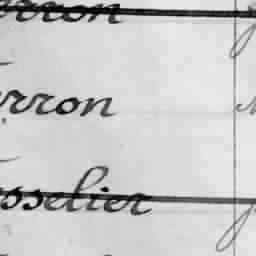 erron
erron
sselier